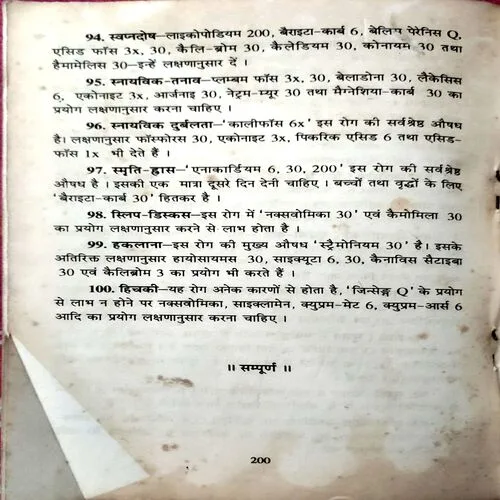 94. स्वप्नदोष–लाइकोपोडियम 200, बैराइटा-कार्ब 6, बेलिप्त पेरेनिस Q,
एसिड फॉस 3x, 30, कैलि-ब्रोम 30, कैलेडियम 30, कोनायम 30 तथा
हैमामेलिस 30–इन्हें लक्षणानुसार दें ।
95. स्नायविक-तनाव–प्लम्बम फॉस 3x, 30, बेलाडोना 30, लैकेसिस
6, एकोनाइट 3x, आर्जनाइ 30, नेट्रम-म्यूर 30 तथा मैग्नेशिया-कार्ब 30 का
प्रयोग लक्षणानुसार करना चाहिए ।
96. स्नायविक दुर्बलता–'कालीफॉस 6x' इस रोग की सर्वश्रेष्ठ औषध
है। लक्षणानुसार फॉस्फोरस 30, एकोनाइट 3x, पिकरिक एसिड 6 तथा एसिड-
फॉस 1x भी देते हैं ।
97. स्मृति-ह्रास–'एनाकार्डियम 6, 30, 200' इस रोग की सर्वश्रेष्ठ
औषध है । इसकी एक मात्रा दूसरे दिन देनी चाहिए । बच्चों तथा वृद्धों के लिए
'बैराइटा-कार्ब 30' हितकर है ।
98. स्लिप-डिस्कस–इस रोग में 'नक्सवोमिका 30' एवं कैमोमिला 30
का प्रयोग लक्षणानुसार करने से लाभ होता है ।
99. हकलाना–इस रोग की मुख्य औषध 'स्ट्रैमोनियम 30' है। इसके
अतिरिक्त लक्षणानुसार हायोसायमस 30, साइक्यूटा 6, 30, कैनाविस सैटाइबा
30 एवं कैलिब्रोम 3 का प्रयोग भी करते हैं ।
100. हिचकी–यह रोग अनेक कारणों से होता है, 'जिन्सेङ्ग Q' के प्रयोग
से लाभ न होने पर नक्सवोमिका, साइक्लामेन, क्युप्रम-मेट 6, क्युप्रम-आर्स 6
आदि का प्रयोग लक्षणानुसार करना चाहिए ।
॥ सम्पूर्ण ॥
200